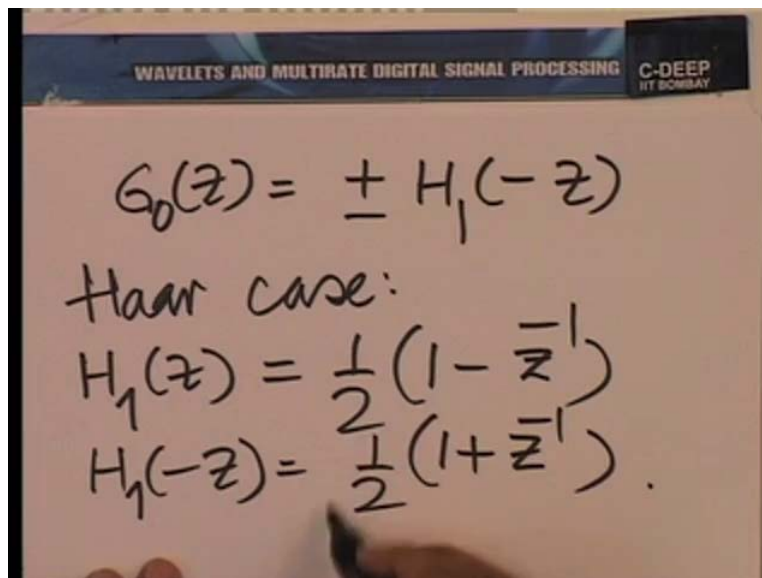 WAVELETS AND MULTIRATE DIGITAL SIGNAL PROCESSING
C-DEEP
IIT BOMBAY
G₀(Z) = ± H₁(-Z)
Haar case:
H₁(Z) = 1/2 (1 - Z⁻¹)
H₁(-Z) = 1/2 (1 + Z⁻¹).